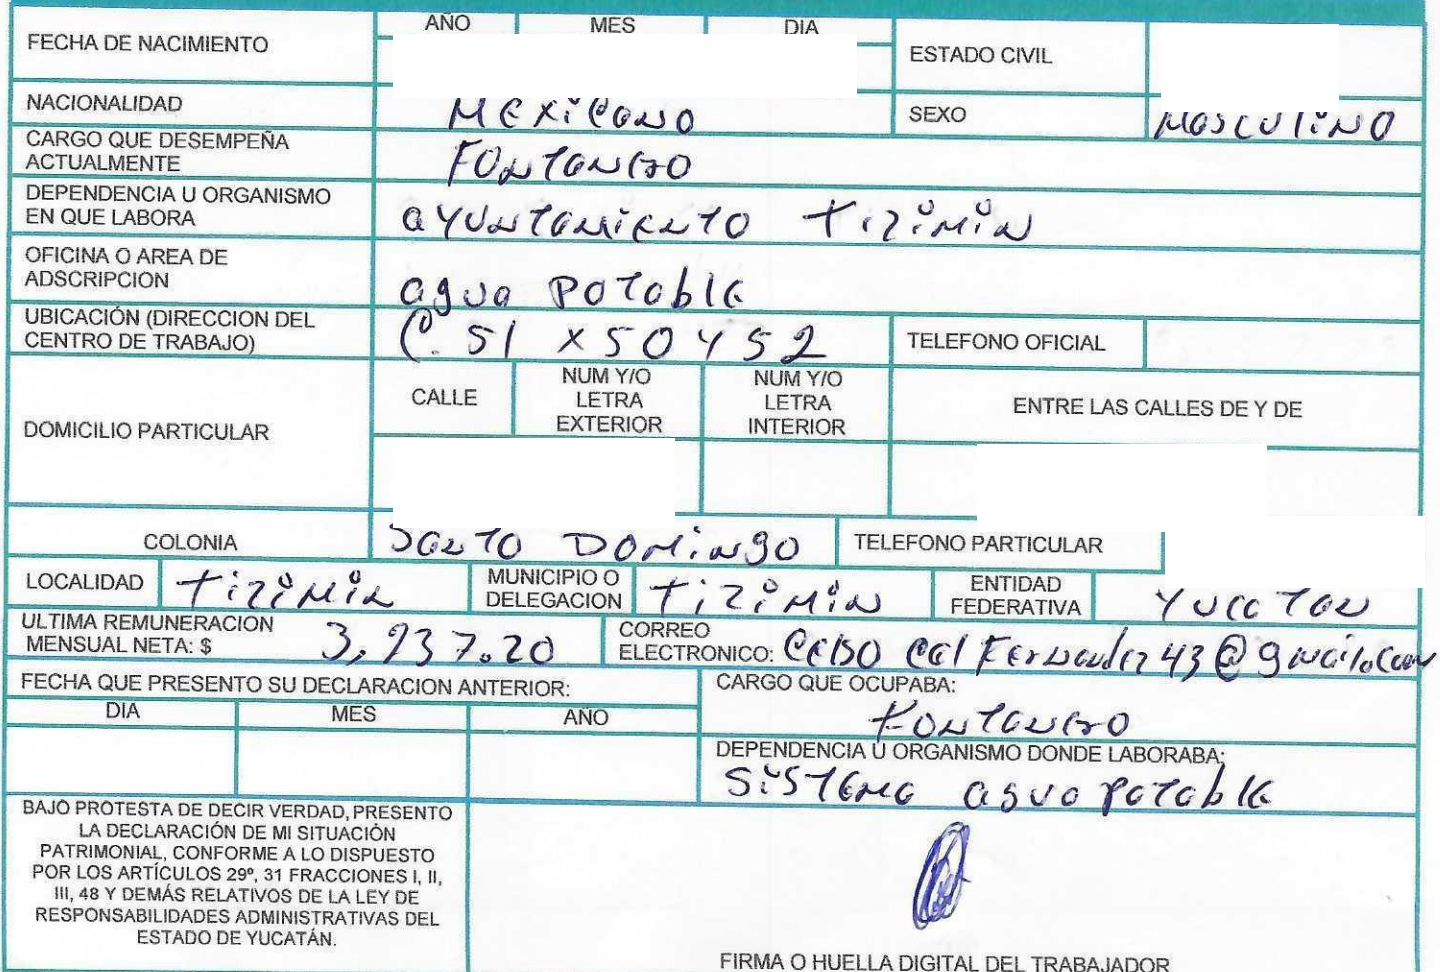 AÑO MES DIA
FECHA DE NACIMIENTO ESTADO CIVIL
NACIONALIDAD Mexicano SEXO Masculino
CARGO QUE DESEMPEÑA
ACTUALMENTE Fontanero
DEPENDENCIA U ORGANISMO
EN QUE LABORA ayuntamiento tizimin
OFICINA O AREA DE
ADSCRIPCION agua potable
UBICACIÓN (DIRECCION DEL
CENTRO DE TRABAJO) C. 51 x 50 y 52 TELEFONO OFICIAL
DOMICILIO PARTICULAR
CALLE
NUM Y/O
LETRA
EXTERIOR
NUM Y/O
LETRA
INTERIOR
ENTRE LAS CALLES DE Y DE
COLONIA Santo Domingo TELEFONO PARTICULAR
LOCALIDAD tizimin
MUNICIPIO O
DELEGACION tizimin
ENTIDAD
FEDERATIVA Yucatan
ULTIMA REMUNERACION
MENSUAL NETA: $ 3,937.20
CORREO
ELECTRONICO:
FECHA QUE PRESENTO SU DECLARACION ANTERIOR:
DIA MES AÑO
CARGO QUE OCUPABA:
Fontanero
DEPENDENCIA U ORGANISMO DONDE LABORABA:
Sistema agua potable
BAJO PROTESTA DE DECIR VERDAD, PRESENTO
LA DECLARACIÓN DE MI SITUACIÓN
PATRIMONIAL, CONFORME A LO DISPUESTO
POR LOS ARTÍCULOS 29º, 31 FRACCIONES I, II,
III, 48 Y DEMÁS RELATIVOS DE LA LEY DE
RESPONSABILIDADES ADMINISTRATIVAS DEL
ESTADO DE YUCATÁN.
FIRMA O HUELLA DIGITAL DEL TRABAJADOR